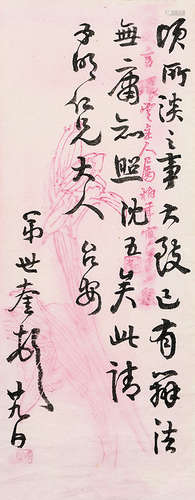 頃所談之事大致已有辦法
無庸知照沈五矣此請
子明仁兄大人台安
弟世奎頓
廿九日